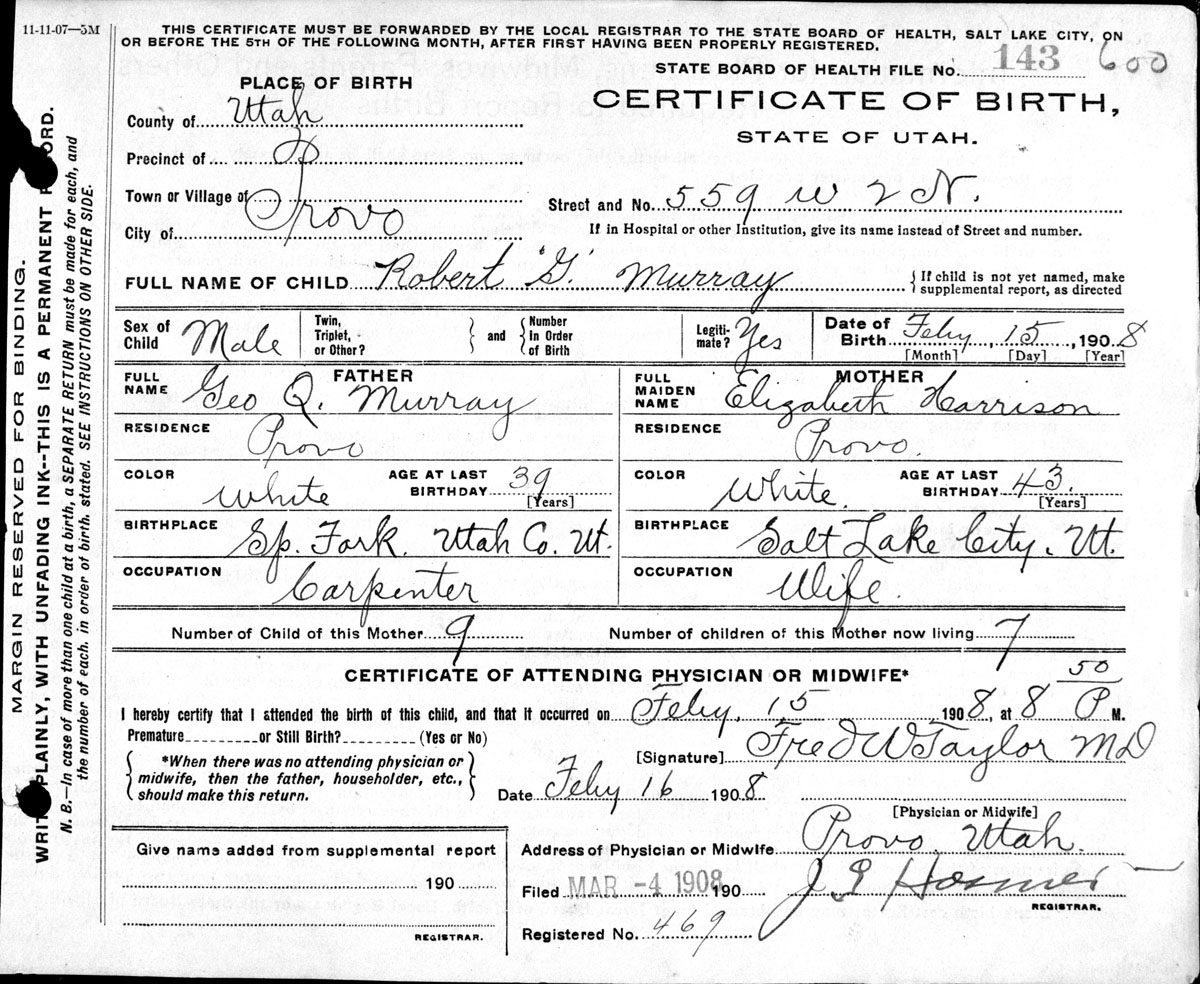 11-11-07—5M
THIS CERTIFICATE MUST BE FORWARDED BY THE LOCAL REGISTRAR TO THE STATE BOARD OF HEALTH, SALT LAKE CITY, ON
OR BEFORE THE 5TH OF THE FOLLOWING MONTH, AFTER FIRST HAVING BEEN PROPERLY REGISTERED.
STATE BOARD OF HEALTH FILE NO. 143 600
PLACE OF BIRTH
CERTIFICATE OF BIRTH,
STATE OF UTAH.
County of Utah
Precinct of P
Town or Village of
City of Provo
Street and No. 559 W 2 N.
If in Hospital or other Institution, give its name instead of Street and number.
FULL NAME OF CHILD Robert "G." Murray { If child is not yet named, make
supplemental report, as directed
Sex of Child Male Twin, Triplet, or Other? } and { Number In Order of Birth Legiti-mate? Yes Date of Birth Feby, 15, 1908
[Month] [Day] [Year]
FATHER MOTHER
FULL NAME Geo Q. Murray FULL MAIDEN NAME Elizabeth Harrison
RESIDENCE Provo RESIDENCE Provo.
COLOR White AGE AT LAST BIRTHDAY 39 [Years] COLOR White. AGE AT LAST BIRTHDAY 43. [Years]
BIRTHPLACE Sp. Fork. Utah Co. Ut. BIRTHPLACE Salt Lake City. Ut.
OCCUPATION Carpenter OCCUPATION Wife.
Number of Child of this Mother 9 Number of children of this Mother now living 7
CERTIFICATE OF ATTENDING PHYSICIAN OR MIDWIFE*
I hereby certify that I attended the birth of this child, and that it occurred on Feby. 15 1908, at 8 50 P M.
Premature or Still Birth? (Yes or No)
[Signature] Fred W Taylor MD
{ *When there was no attending physician or
midwife, then the father, householder, etc.,
should make this return. }
Date Feby 16 1908
[Physician or Midwife]
Address of Physician or Midwife Provo, Utah.
Give name added from supplemental report
190
REGISTRAR.
Filed MAR -4 1908 190
REGISTRAR.
Registered No. 469
MARGIN RESERVED FOR BINDING.
PLAINLY, WITH UNFADING INK--THIS IS A PERMANENT
N. B.—In case of more than one child at a birth, a SEPARATE RETURN must be made for each, and
the number of each, in order of birth, stated. SEE INSTRUCTIONS ON OTHER SIDE.